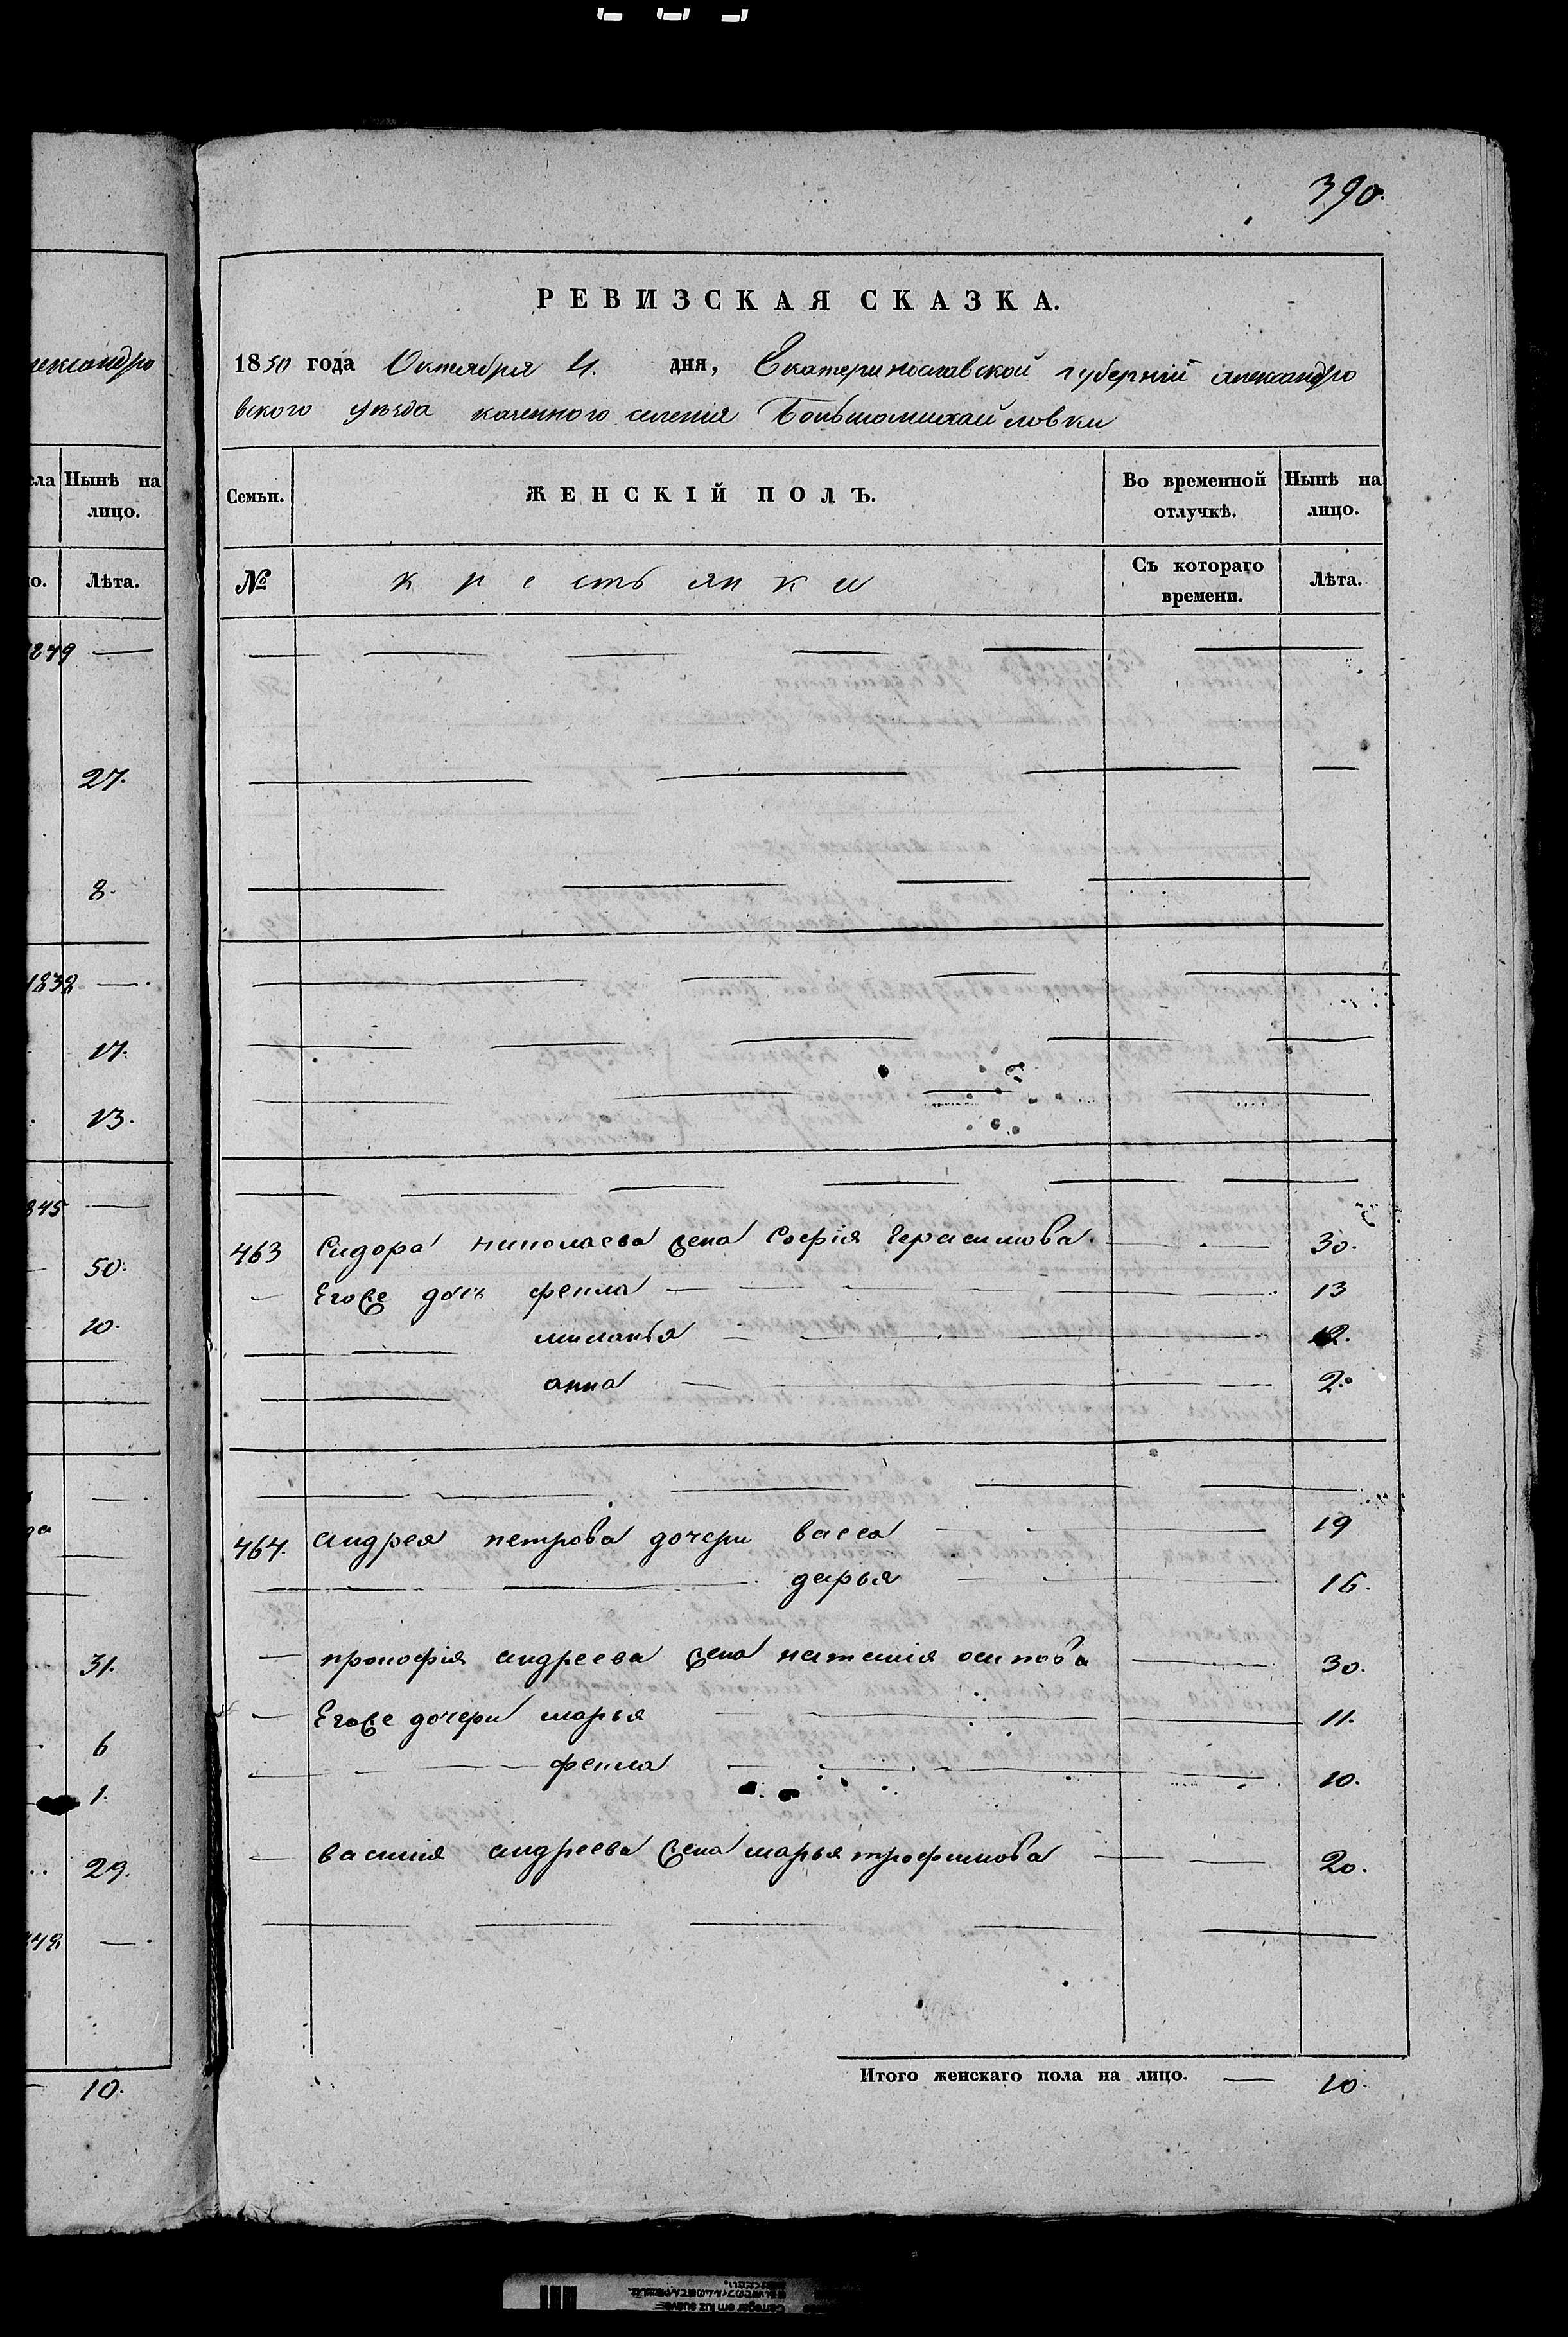 390.
РЕВИЗСКАЯ СКАЗКА.
1850 года Октября 4. дня, Екатеринославской губернїи александро
вского уѣзда казенного селенїя Большомихайловки
лександро
сла Нынѣ на лицо.
о. Лѣта.
1849 —
27.
8.
1838 —.
17.
13.
845 —
50.
10.
31.
6
1.
29.
—.
10.
Семьи. ЖЕНСКІЙ ПОЛЪ. Во временной отлучкѣ. Нынѣ на лицо.
№ крестьянки Съ котораго времени. Лѣта.
463 Сидора николаева жена Софїя Герасимова 30.
— Егоже дочь фекла 13
миланья 12.
анна 2.
464. андрея петрова дочери васса 19
дарья 16.
— прокофія андреева жена наталія осипова 30.
— Егоже дочери марья 11.
— фекла 10.
— василія андреева жена марья трофимова 20.
Итого женскаго пола на лицо. — 10.